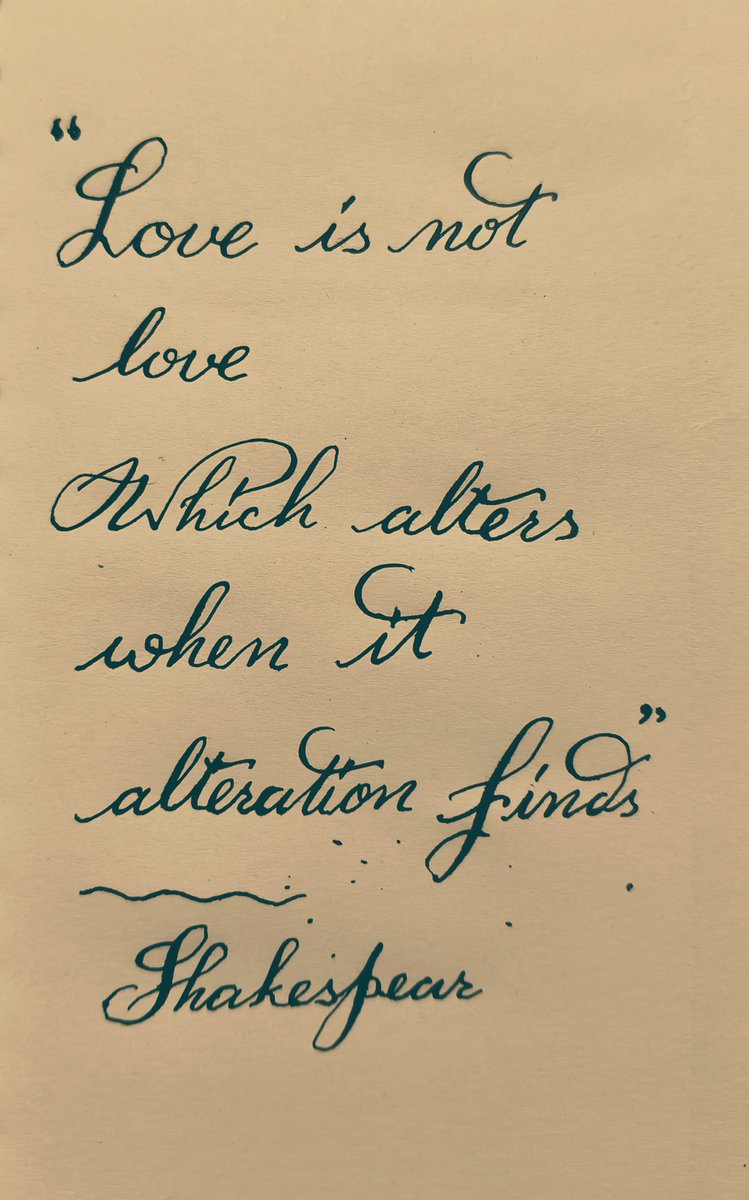 “Love is not
love
Which alters
when it
alteration finds”
Shakespear